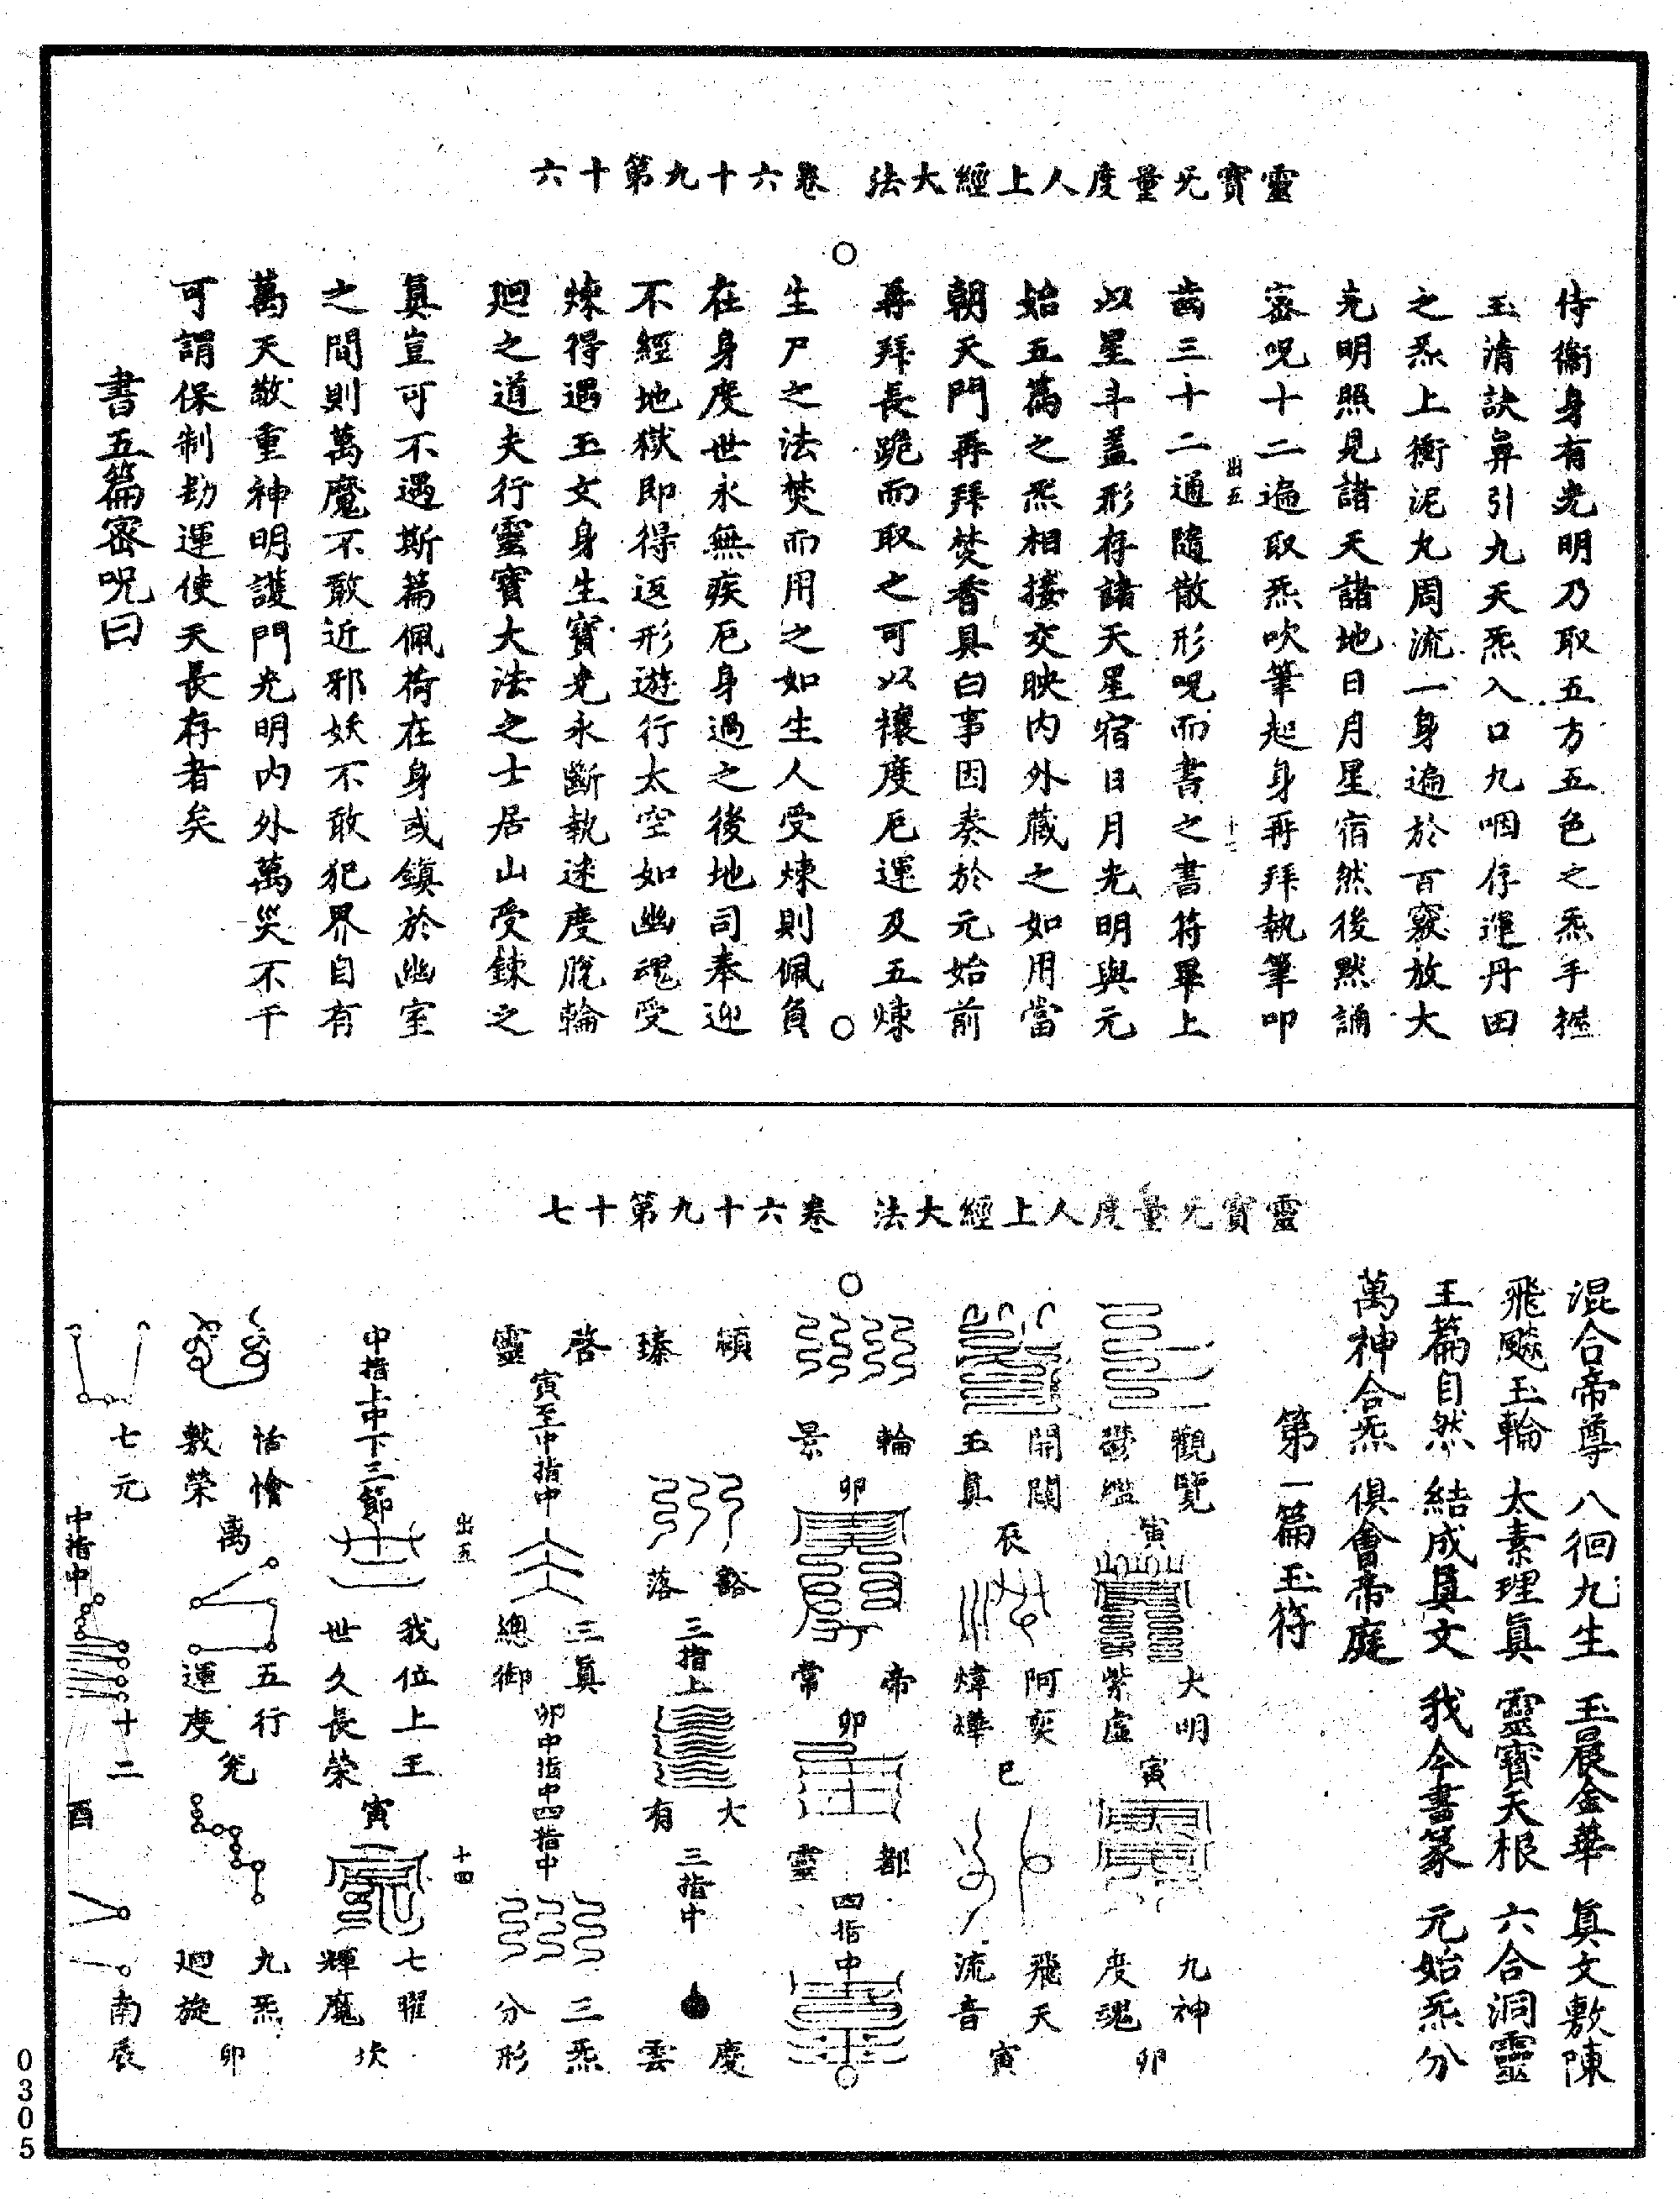 靈寶无量度人上經大法　卷六十九第十六
侍衞身有光明乃取五方五色之炁手握
玉清訣鼻引九天炁入口九咽存運丹田
之炁上衝泥丸周流一身遍於百竅放大
光明照見諸天諸地日月星宿然後默誦
密呪十二遍取炁吹筆起身再拜執筆叩
出五
十三
齒三十二通隨散形呪而書之書符畢上
以星斗蓋形存諸天星宿日月光明與元
始五篇之炁相接交映內外藏之如用當
朝天門再拜焚香具白事因奏於元始前
再拜長跪而取之可以禳度厄運及五煉
生尸之法焚而用之如生人受煉則佩負
在身度世永無疾厄身過之後地司奉迎
不經地獄即得返形遊行太空如幽魂受
煉得遇玉文身生寶光永斷執迷度脫輪
廻之道夫行靈寶大法之士居山受鍊之
眞豈可不遇斯篇佩荷在身或鎮於幽室
之間則萬魔不敢近邪妖不敢犯界自有
萬天敬重神明護門光明內外萬災不干
可謂保制劫運使天長存者矣
書五篇密呪曰
靈寶无量度人上經大法　卷六十九第十七
混合帝尊　八徊九生　玉晨金華　眞文敷陳
飛飈玉輪　太素理眞　靈寶天根　六合洞靈
王篇自然　結成眞文　我今書篆　元始炁分
萬神合炁　俱會帝庭
第一篇玉符
觀覽
寅
大明
紫虛
寅
九神
度魂
卯
開關
五眞
辰
阿奕
煒燁
巳
飛天
流音
寅
輪
景
卯
帝
常
卯
都
靈
四指中
頴
臻
豁
落
三指上
大
有
三指中
慶
雲
啓
靈
寅至中指中
三眞
總御
卯中指中四指中
三炁
分形
出五
十四
中指上中下三節
我位上王
世久長榮
寅
七曜
輝魔
坎
恬憺
敷榮
离
五行
運度
兊
九炁
廻旋
卯
七元
中指中
十二
酉
南辰
0305